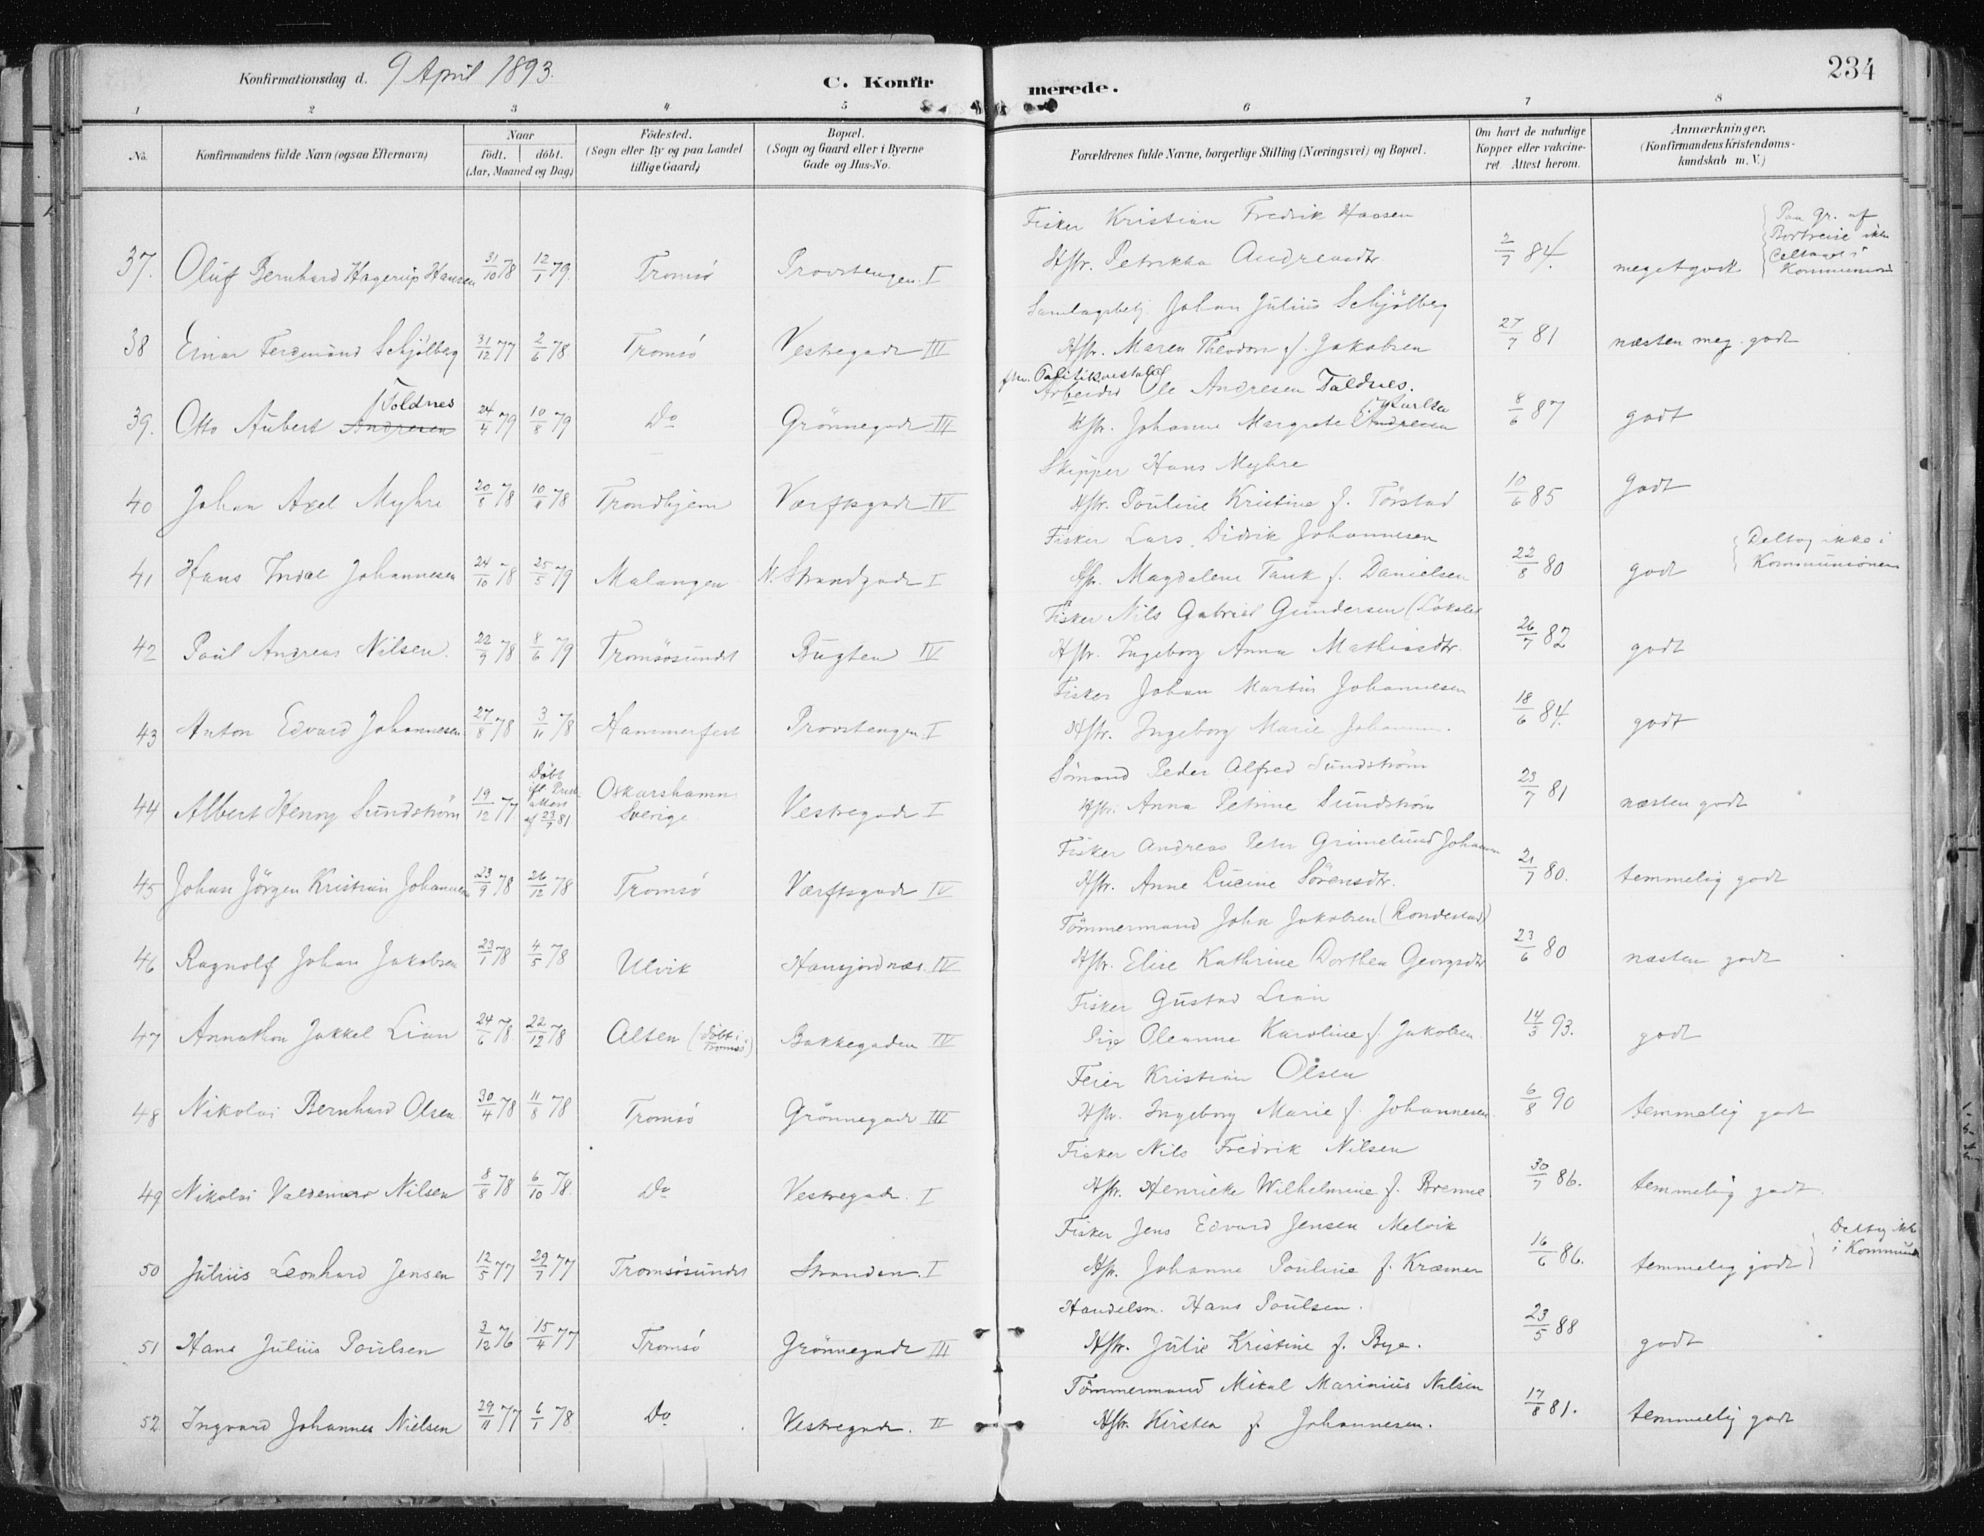 Konfirmationsdag d. 9 April 1893.
C. Konfirmerede.
234
1 2 3 4 5 6 7 8
No.
Konfirmandens fulde Navn (ogsaa Efternavn)
Naar
födt. döbt.
(Aar, Maaned og Dag)
Födested.
(Sogn eller By og paa Landet
tillige Gaard)
Bopæl.
(Sogn og Gaard eller i Byerne
Gade og Hus-No.
Forældrenes fulde Navne, borgerlige Stilling (Næringsvei) og Bopæl.
Om havt de naturlige
Kopper eller vakcine-
ret Attest herom.
Anmærkninger.
(Konfirmandens Kristendoms-
kundskab m. V.)
Fisker Kristian Fredrik Hansen
37. Oluf Bernhard Hagerup Hansen 31/10 78 12/1 79 Tromsö Provstengen I Hstr. Petrikka Andreasdtr 2/7 84. meget godt
Paa Gr. af
Bortreise ikke
Deltaget i
Kommunion
Samlagsbetj. Johan Julius Schjölberg
38 Einar Ferdinand Schjölberg 31/12 77 2/6 78 Tromsö Vestregade III Hstr. Maren Theodora f. Jakobsen 27/7 81 næsten meg. godt
fhv. Politikonstabel
Arbeider Ole Andresen Toldnes.
39. Otto Aubert Andresen Toldnes 24/4 79 10/8 79 Do Grönnegade III Hstr. Johanne Margrete Andresen f. Karlsen 8/6 87 godt
Skipper Hans Myhre
40 Johan Axel Myhre 20/8 78 10/9 78 Trondhjem Værftsgade IV Hstr. Pauline Kristine f. Törstad 10/6 85 Godt
Fisker Lars Didrik Johannesen
41 Hans Indal Johannesen 24/10 78 25/5 79 Malangen N. Strandgade I Hstr. Magdalene Tank f. Danielsen 22/8 80 godt
Deltog ikke i
Kommunionen
Fisker Nils Gabriel Gundersen
42 Paul Andreas Nilsen. 22/9 78 8/6 79 Tromsösundet Bugten IV Hstr. Ingeborg Anna Mathiasdtr. 26/7 82 godt
Fisker Johan Martin Johannesen
43 Anton Edvard Johannesen 27/8 78 3/11 78 Hammerfest Provstengen I Hstr. Ingeborg Marie Johannes. 18/6 84. godt
Sömand Peder Alfred Sundström
44 Albert Henry Sundström 19/12 77 Döbt af 23/7 81 Oskarshamn Sverige Vestregade I Hstr. Anna Petrine Sundström 23/7 81 næsten godt
Fisker Andreas Peter Grimelund Johannes
45 Johan Jörgen Kristian Johannesen 23/9 78 26/12 78 Tromsö Værftsgade IV Hstr. Anne Lucine Sörensdtr. 21/7 80. temmelig godt
Tömmermand John Jakobsen (Rondestad)
46 Ragnolf Johan Jakobsen 23/1 78 4/5 78 Ulvik Hansjordnæs. IV Hstr. Elise Kathrine Dorthea Georgsdtr 23/6 80 næsten godt
Fisker Gustad Lian
47 Annathon Jakkel Lian 24/6 78 22/12 78 Alten (döbt i Tromsö) Bakkegaden IV Pige Oleanne Karoline f. Jakobsen 14/3 93. godt
Feier Kristian Olsen
48 Nikolai Bernhard Olsen 30/4 78 11/8 78 Tromsö Grönnegade III Hstr. Ingeborg Marie f. Johannesen. 6/8 90 temmelig godt
Fisker Nils Fredrik Nilsen
49 Nikolai Valdemar Nilsen 8/8 78 6/10 78. Do Vestregade. I Hstr. Henrikke Wilhelmine f. Brenne. 30/7 86. temmelig godt
Fisker Jens Edvard Jensen Melvik
50 Julius Leonhard Jensen 12/5 77 29/7 77 Tromsösundet Stranden. I Hstr. Johanna Pauline f. Kræmer 16/6 86. temmelig godt
Deltog ikke
i Kommun
Handelsm. Hans Poulsen.
51 Hans Julius Poulsen 3/12 76 15/4 77 Tromsö Grönnegade III Hstr. Julie Kristine f. Bye. 23/5 88 godt
Tömmermand Mikal Marinius Nilsen
52 Ingvard Johannes Nielsen 29/11 77 6/1 78 Do Vestregade. II Hstr. Kirsten f. Johannesen. 17/8 81. temmelig godt